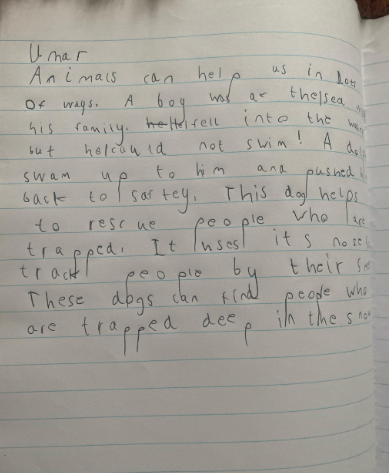 Umar
Animals can help us in lots
of ways. A boy was at the sea
his family. he fell into the
but he could not swim! A
swam up to him and pushed
back to saftey. This dog helps
to rescue people who are
trapped. It uses it s nose
track people by their
These dogs can find people who
are trapped deep in the